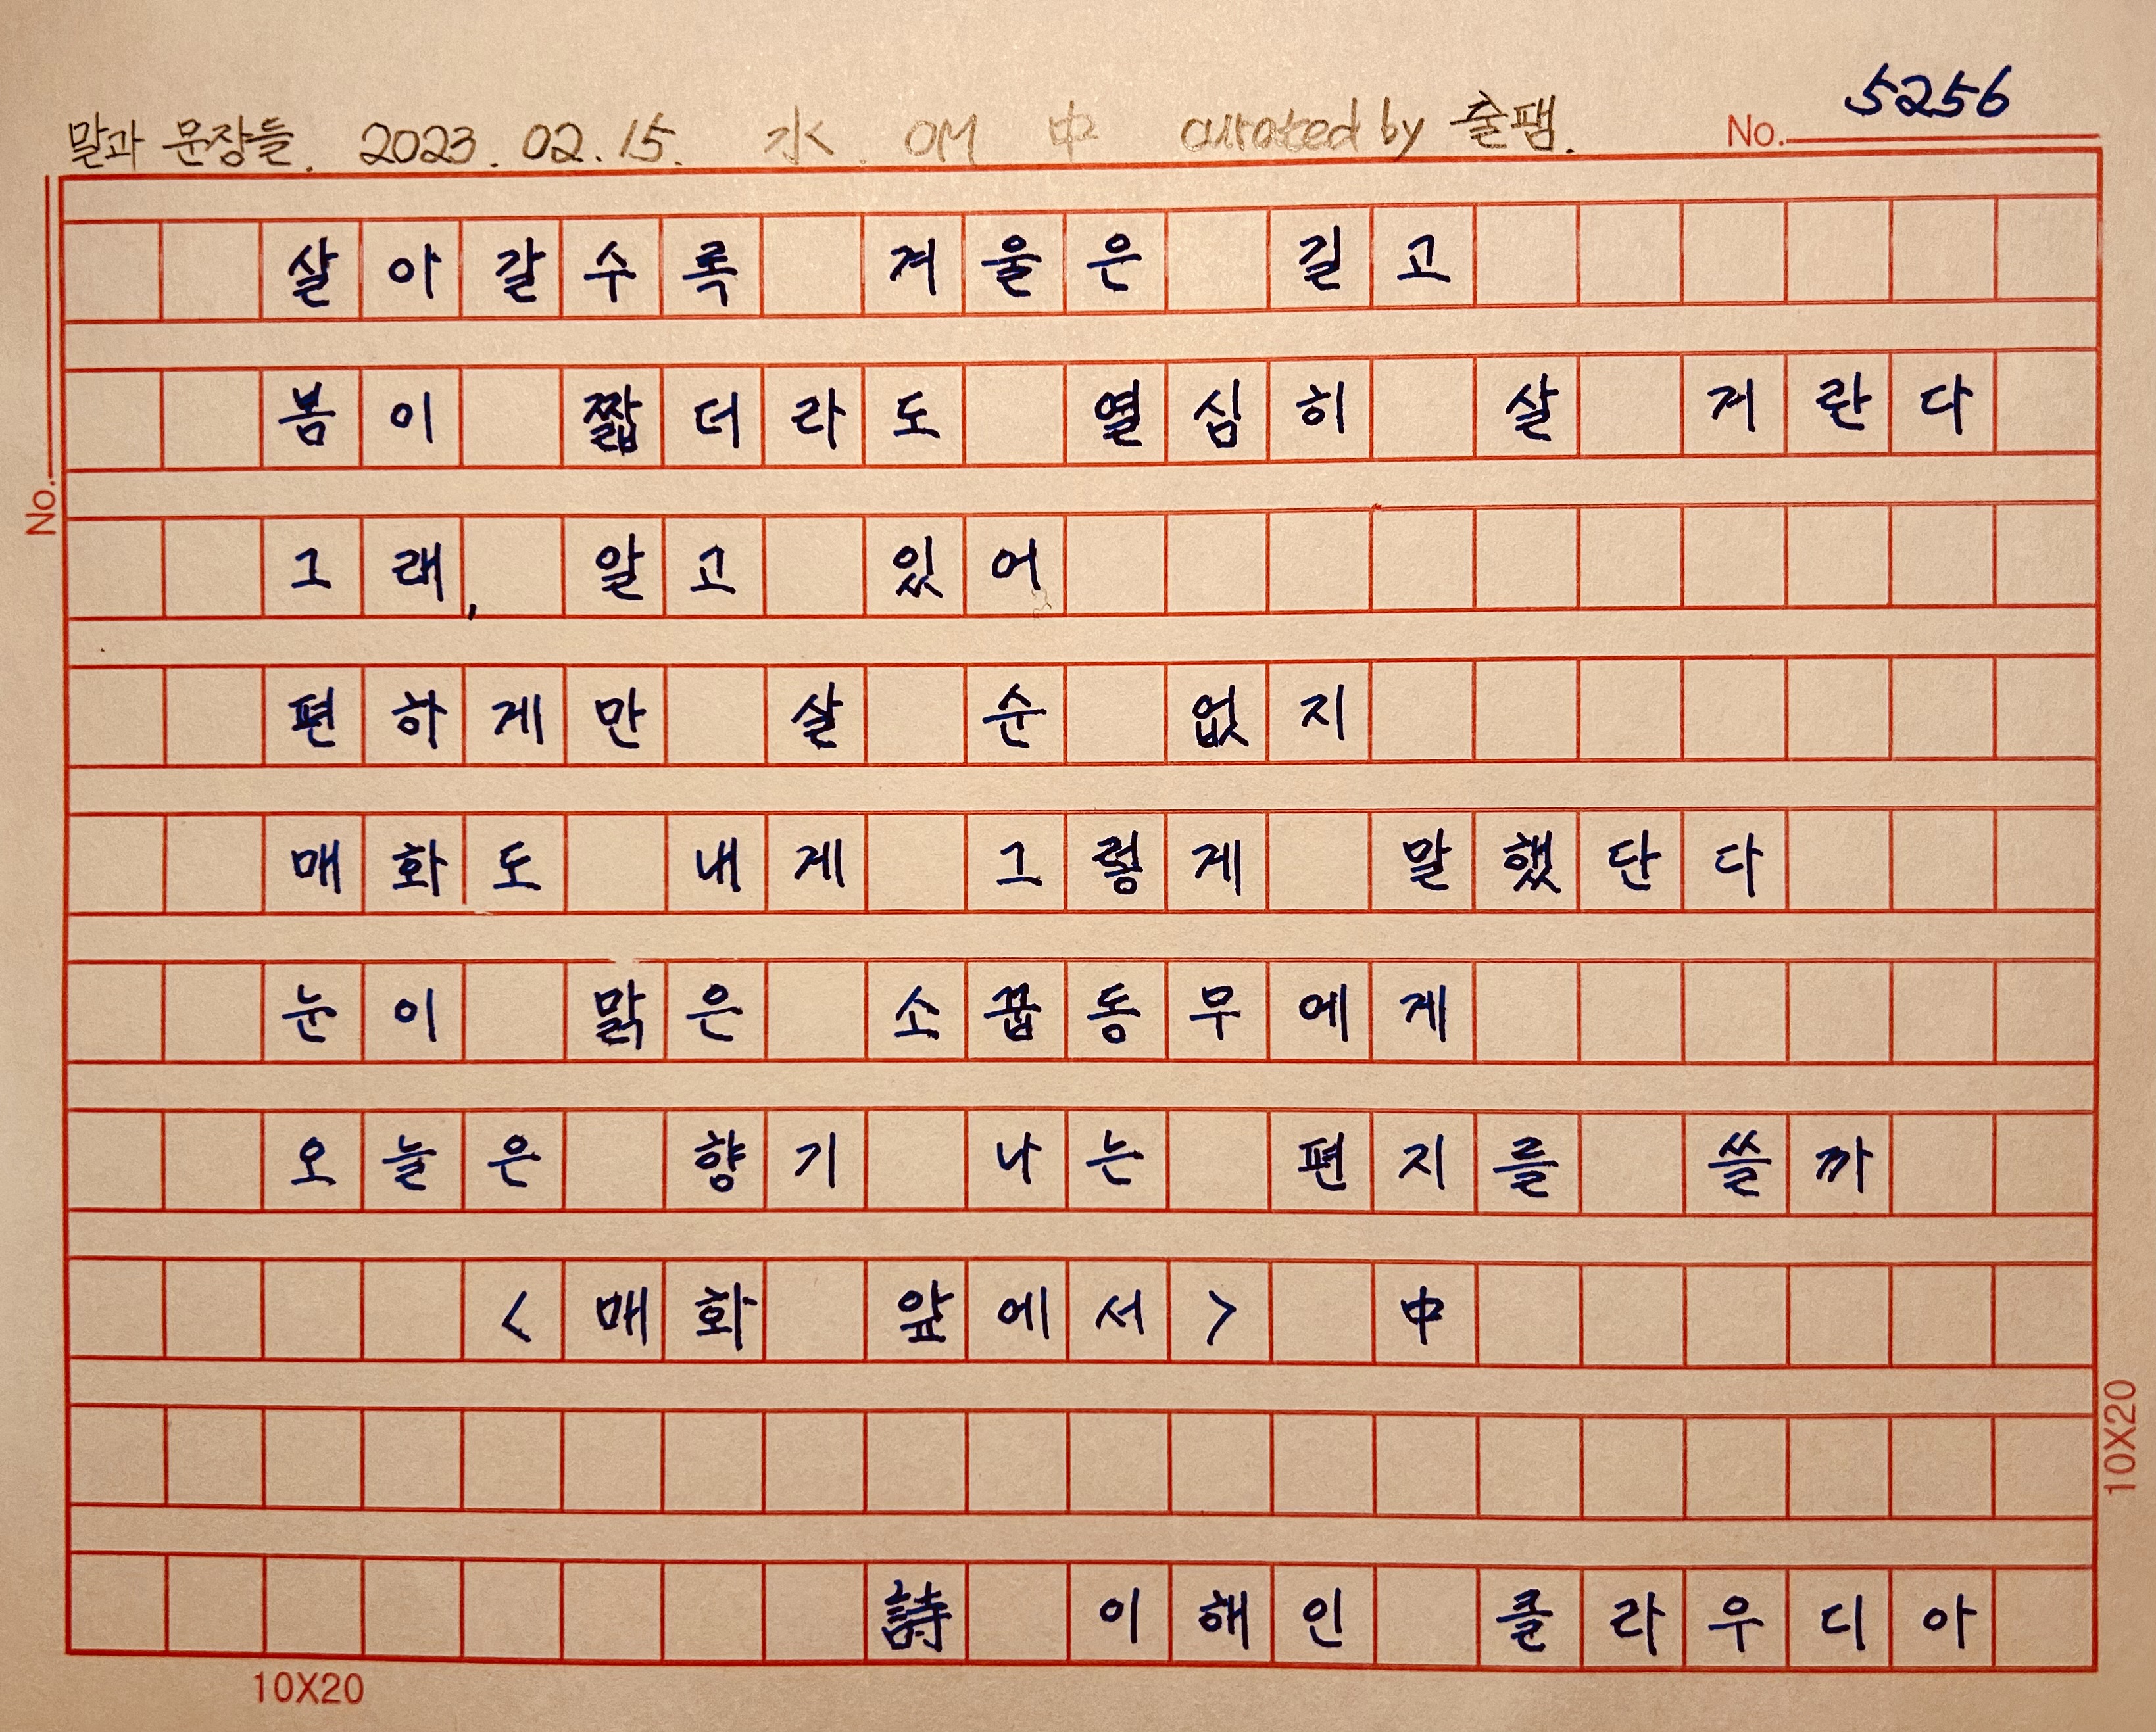 말과 문장들. 2023. 02. 15. 水. OM 中 curated by 줄팸.
No. 5256
살아갈수록 겨울은 길고
봄이 짧더라도 열심히 살 거란다
No.
그래, 알고 있어
편하게만 살 순 없지
매화도 내게 그렇게 말했단다
눈이 맑은 소꿉동무에게
오늘은 향기 나는 편지를 쓸까
<매화 앞에서> 中
10X20
詩 이해인 클라우디아
10X20